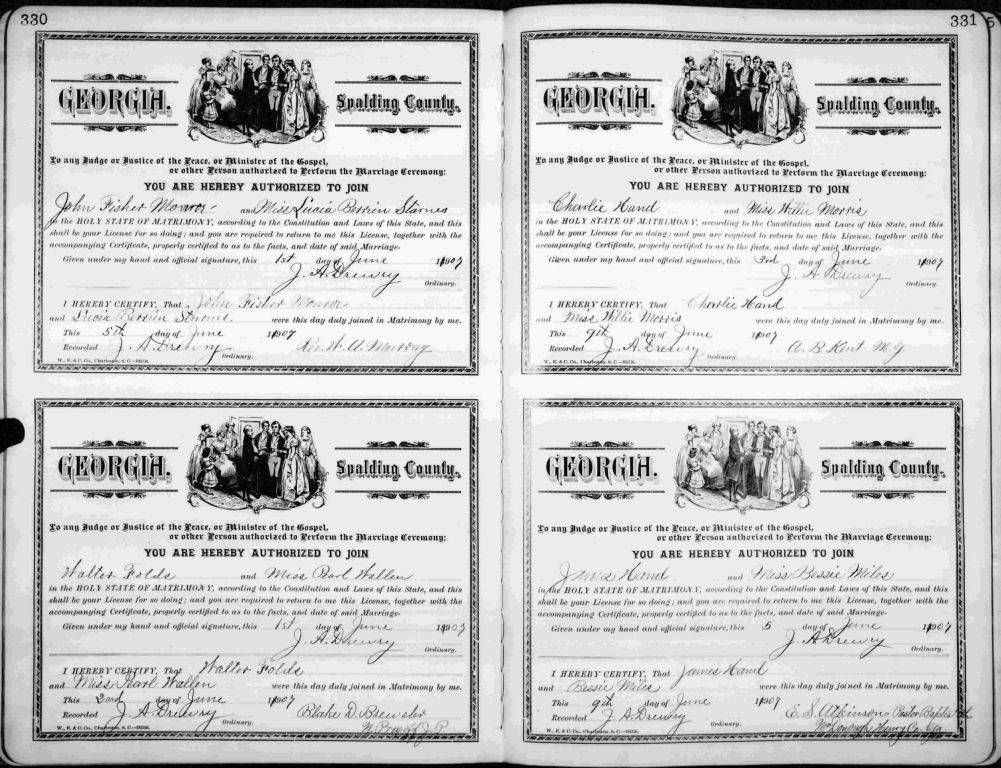 330
GEORGIA. Spalding County.
To any Judge or Justice of the Peace, or Minister of the Gospel,
or other Person authorized to Perform the Marriage Ceremony:
YOU ARE HEREBY AUTHORIZED TO JOIN
John Fisher Monroe and Miss Lucia Berrien Starnes
in the HOLY STATE OF MATRIMONY, according to the Constitution and Laws of this State, and this
shall be your License for so doing; and you are required to return to me this License, together with the
accompanying Certificate, properly certified to as to the facts, and date of said Marriage.
Given under my hand and official signature, this 1st day of June 1907
J. A. Drewry
Ordinary.
I HEREBY CERTIFY, That John Fisher Monroe
and Lucia Berrien Starnes were this day duly joined in Matrimony by me.
This 5th day of June 1907
Recorded J. A. Drewry Ordinary. Rev. W. A.
W., E. & C. Co., Charleston, S. C.
GEORGIA. Spalding County.
To any Judge or Justice of the Peace, or Minister of the Gospel,
or other Person authorized to Perform the Marriage Ceremony:
YOU ARE HEREBY AUTHORIZED TO JOIN
Walter Folds and Miss Pearl Wallen
in the HOLY STATE OF MATRIMONY, according to the Constitution and Laws of this State, and this
shall be your License for so doing; and you are required to return to me this License, together with the
accompanying Certificate, properly certified to as to the facts, and date of said Marriage.
Given under my hand and official signature, this 1st day of June 1907
J. A. Drewry
Ordinary.
I HEREBY CERTIFY, That Walter Folds
and Miss Pearl Wallen were this day duly joined in Matrimony by me.
This 2nd day of June 1907
Recorded J. A. Drewry Ordinary. Blake D. Brewster
J. P.
W., E. & C. Co., Charleston, S. C.
331 5
GEORGIA. Spalding County.
To any Judge or Justice of the Peace, or Minister of the Gospel,
or other Person authorized to Perform the Marriage Ceremony:
YOU ARE HEREBY AUTHORIZED TO JOIN
Charlie Hand and Miss Willie Morris
in the HOLY STATE OF MATRIMONY, according to the Constitution and Laws of this State, and this
shall be your License for so doing; and you are required to return to me this License, together with the
accompanying Certificate, properly certified to as to the facts, and date of said Marriage.
Given under my hand and official signature, this 3rd day of June 1907
J. A. Drewry
Ordinary.
I HEREBY CERTIFY, That Charlie Hand
and Miss Willie Morris were this day duly joined in Matrimony by me.
This 9th day of June 1907
Recorded J. A. Drewry Ordinary. A. B. Kent M G
W., E. & C. Co., Charleston, S. C.
GEORGIA. Spalding County.
To any Judge or Justice of the Peace, or Minister of the Gospel,
or other Person authorized to Perform the Marriage Ceremony:
YOU ARE HEREBY AUTHORIZED TO JOIN
James Hand and Miss Bessie Miles
in the HOLY STATE OF MATRIMONY, according to the Constitution and Laws of this State, and this
shall be your License for so doing; and you are required to return to me this License, together with the
accompanying Certificate, properly certified to as to the facts, and date of said Marriage.
Given under my hand and official signature, this 5 day of June 1907
J. A. Drewry
Ordinary.
I HEREBY CERTIFY, That James Hand
and Bessie Miles were this day duly joined in Matrimony by me.
This 9th day of June 1907
Recorded J. A. Drewry Ordinary. E. S. Atkinson Pastor Baptist
McDonough Henry Co. Ga
W., E. & C. Co., Charleston, S. C.